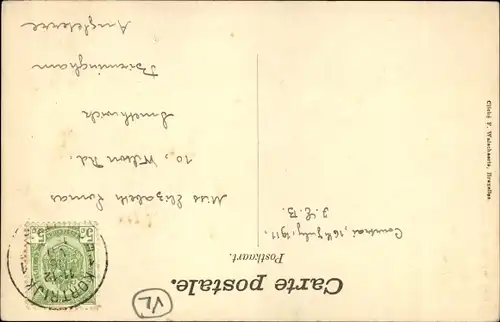 Carte postale.
Postkaart.
Courtrai, 16th July, 1911.
J. L. B.
Miss Elizabeth Lomas
10, Wilson Rd.
Smethwick
Birmingham
Angleterre
Cliché F. Walschaerts, Bruxelles
5c 5c
KORTRIJK
VL